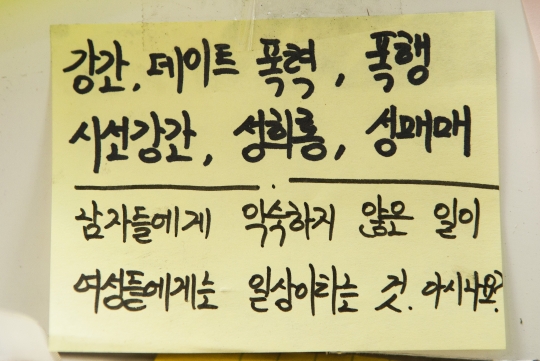 강간, 데이트 폭력, 폭행
시선강간, 성희롱, 성매매
남자들에게 익숙하지 않은 일이
여성들에게는 일상이라는 것. 아시나요?